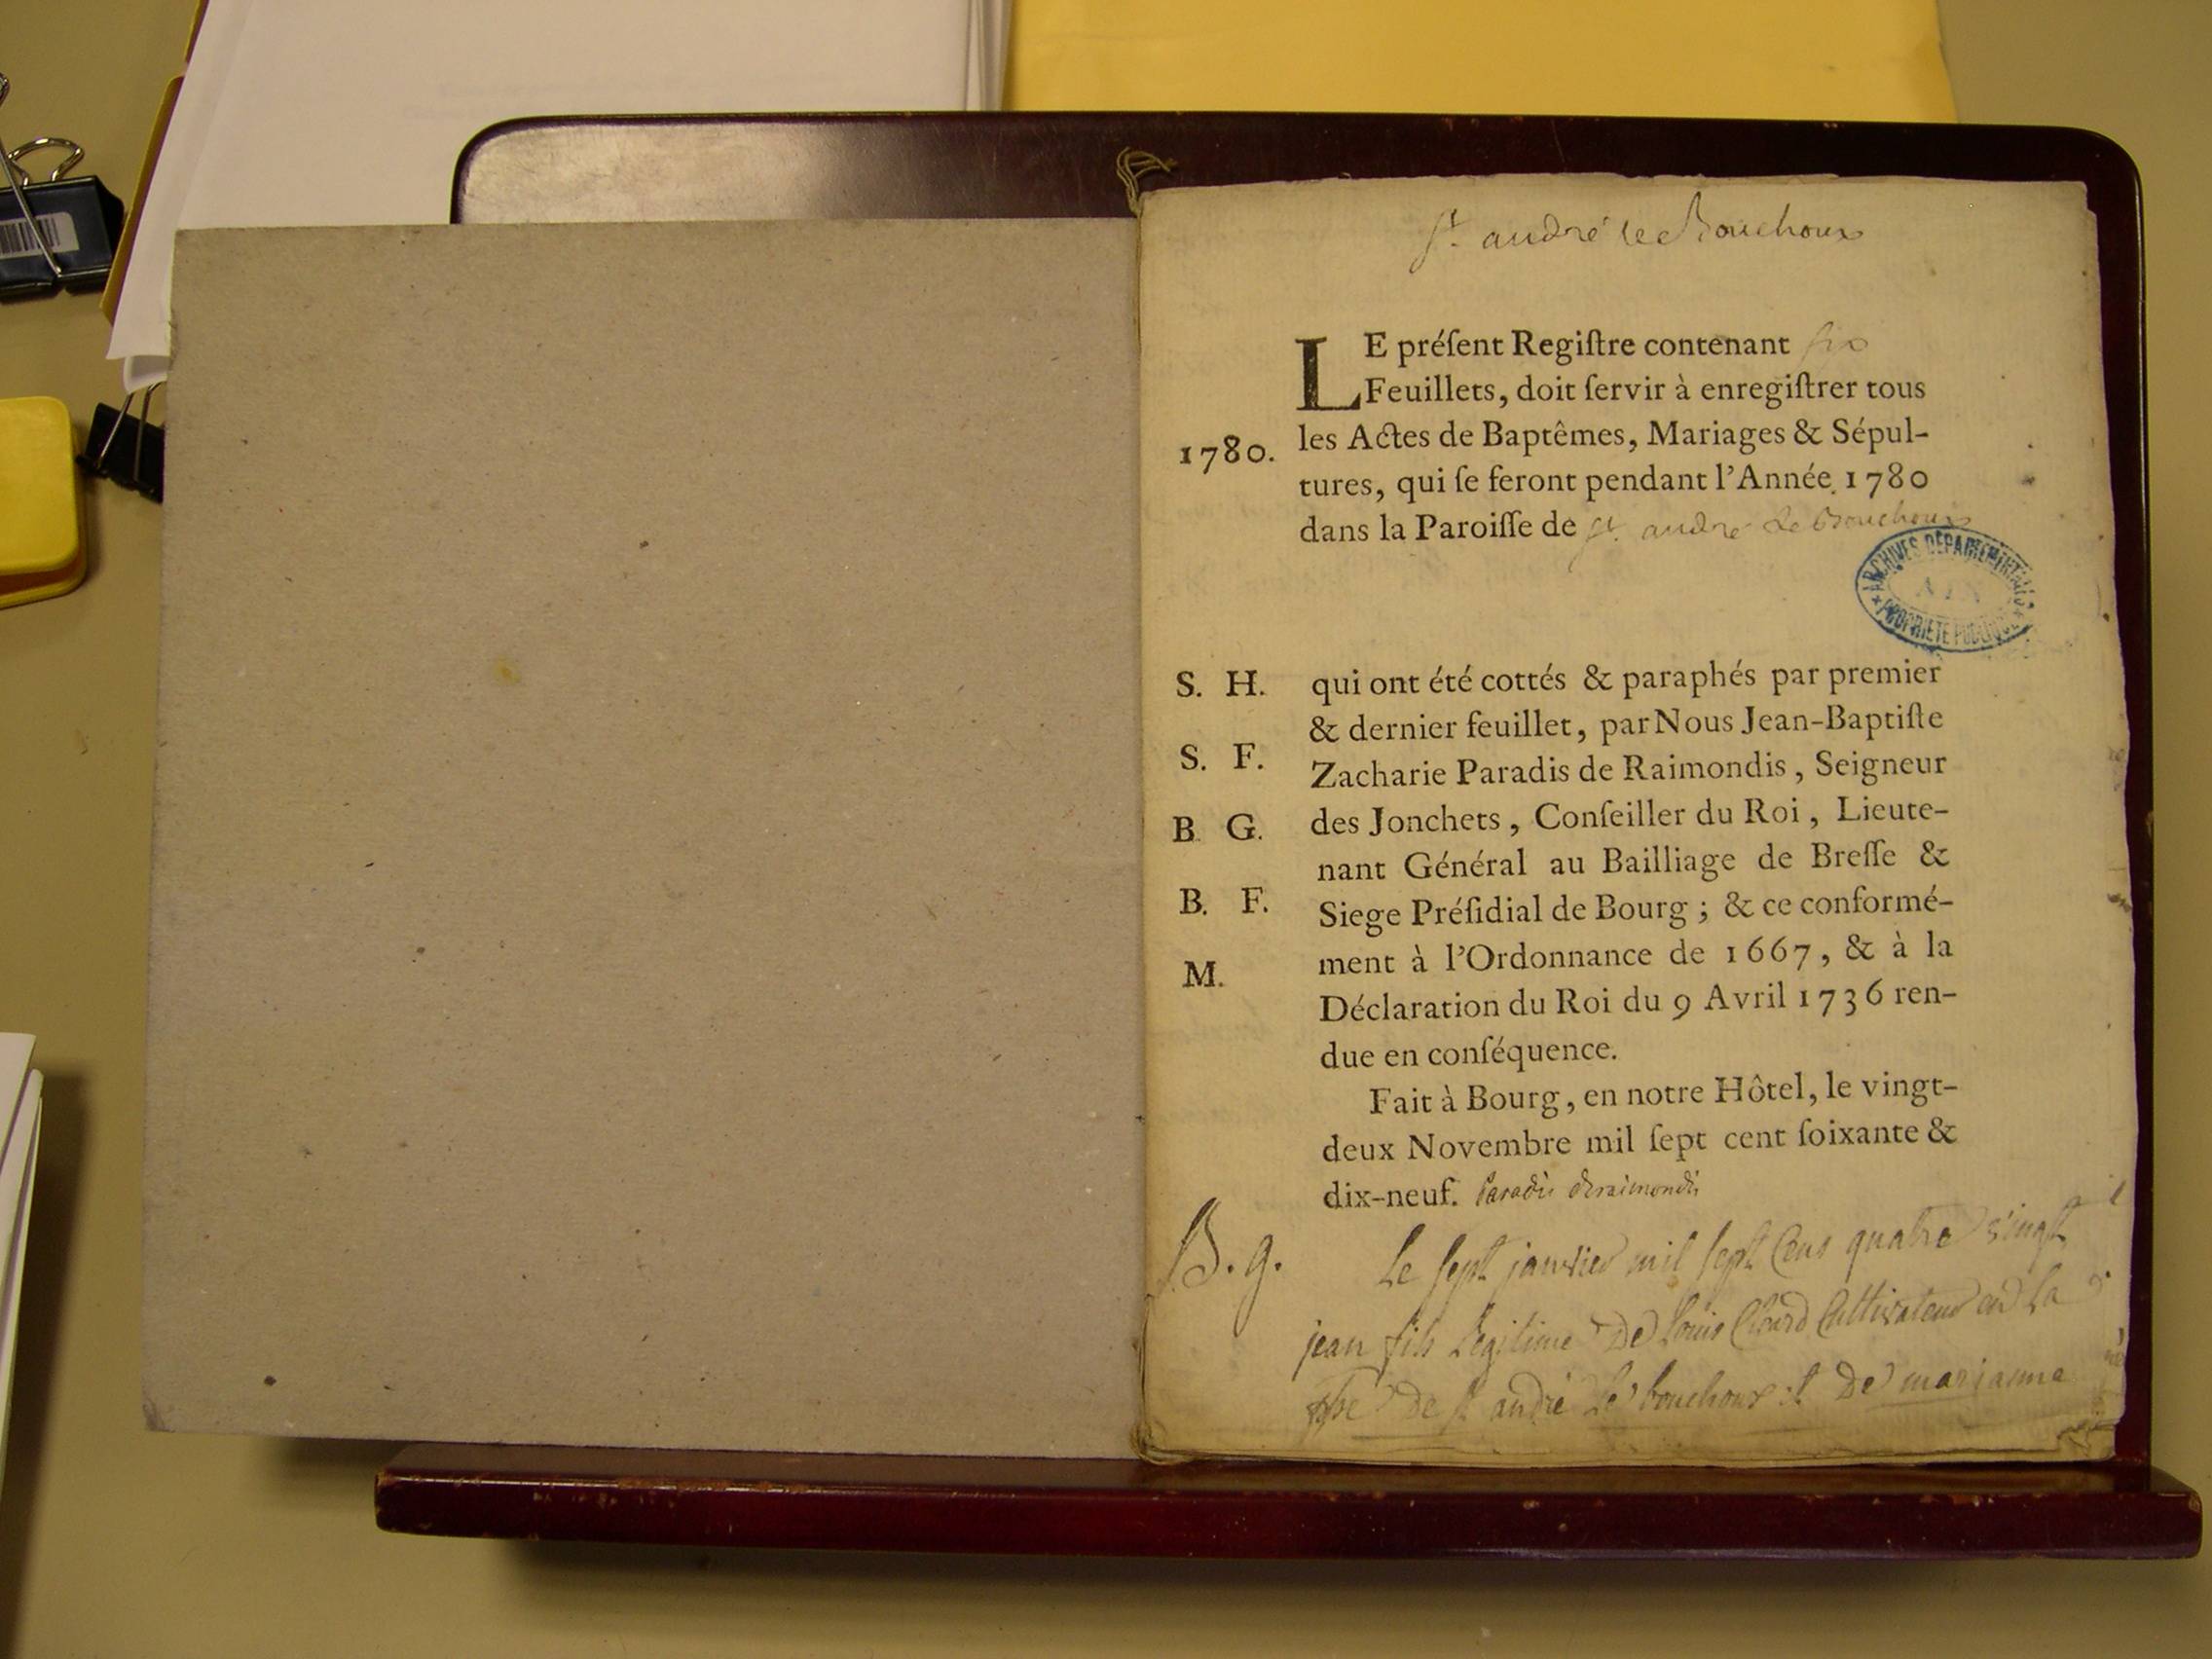 St. andré le Bouchoux
LE préſent Regiſtre contenant six
Feuillets, doit ſervir à enregiſtrer tous
1780.
les Actes de Baptêmes, Mariages & Sépul-
tures, qui ſe feront pendant l'Année 1780
dans la Paroiſſe de St. andré Le Bouchoux
ARCHIVES DÉPARTEMENTALES
AIN
PROPRIÉTÉ PUBLIQUE
S. H.
S. F.
B. G.
B. F.
M.
qui ont été cottés & paraphés par premier
& dernier feuillet, par Nous Jean-Baptiſte
Zacharie Paradis de Raimondis, Seigneur
des Jonchets, Conſeiller du Roi, Lieute-
nant Général au Bailliage de Breſſe &
Siege Préſidial de Bourg ; & ce conformé-
ment à l'Ordonnance de 1667, & à la
Déclaration du Roi du 9 Avril 1736 ren-
due en conſéquence.
Fait à Bourg, en notre Hôtel, le vingt-
deux Novembre mil ſept cent ſoixante &
dix-neuf. Paradis deraimondis
B. g.
Le sept janvier mil sept Cens quatre vingt
jean fils Legitime De Louis Cultivateur en La
psse De st andré Le bouchoux et De marianne